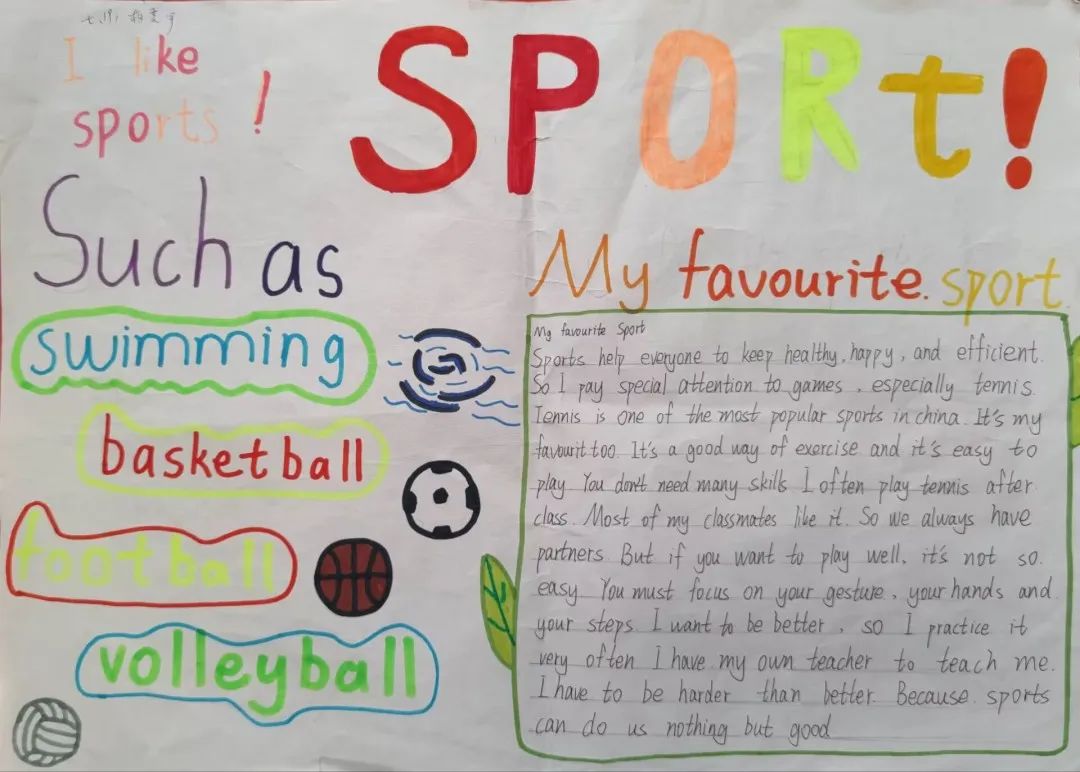 I like
sports !
SPORt!
Such as
swimming
basketball
football
volleyball
My favourite. sport
My favourite Sport
Sports help everyone to keep healthy, happy, and efficient.
So I pay special attention to games, especially tennis
Tennis is one of the most popular sports in china. It's my
favourit too. It's a good way of exercise and it's easy to
play You don't need many skills I often play tennis after
class. Most of my classmates like it. So we always have
partners But if you want to play well, it's not so
easy You must focus on your gesture, your hands and
your steps. I want to be better, so I practice it
very often I have my own teacher to teach me.
I have to be harder than better. Because sports
can do us nothing but good